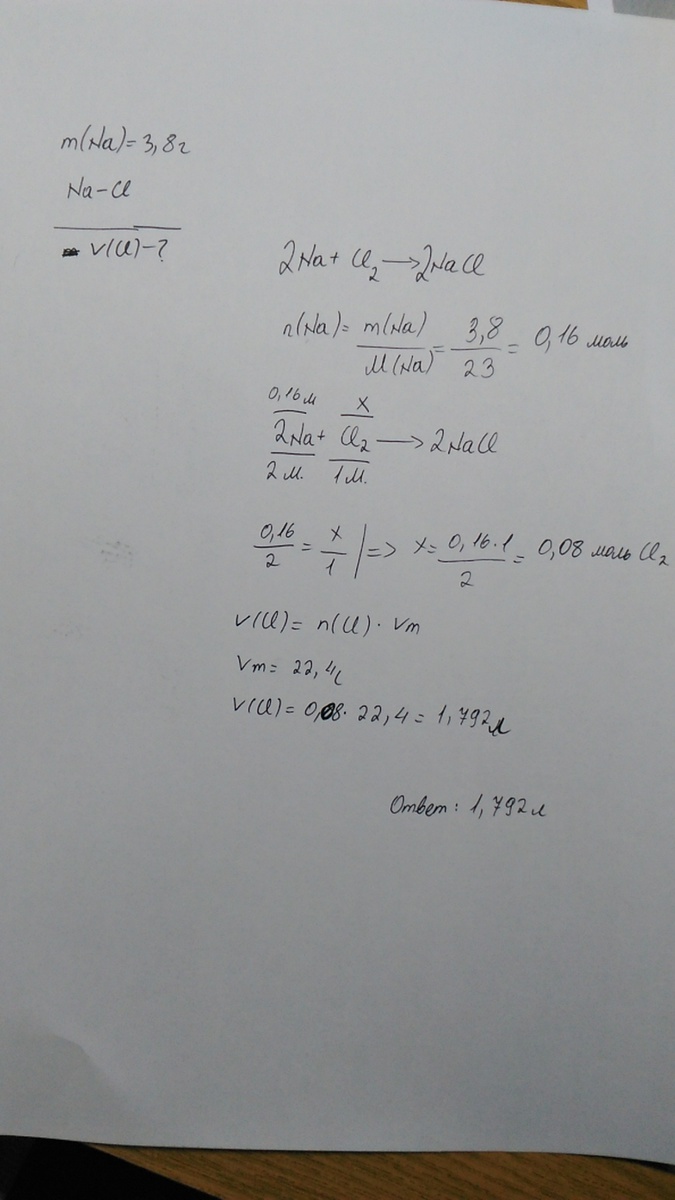 m(Na)=3,8г
Na-Cl
V(Cl)-?
2Na+Cl₂→2NaCl
n(Na)= m(Na)/M(Na) = 3,8/23 = 0,16 моль
0,16м x
2Na+Cl₂→2NaCl
2м. 1м.
0,16/2 = x/1 |=> x= 0,16·1/2 = 0,08 моль Cl₂
V(Cl)= n(Cl)·Vm
Vm= 22,4
V(Cl)= 0,08·22,4=1,792л
Ответ: 1,792л